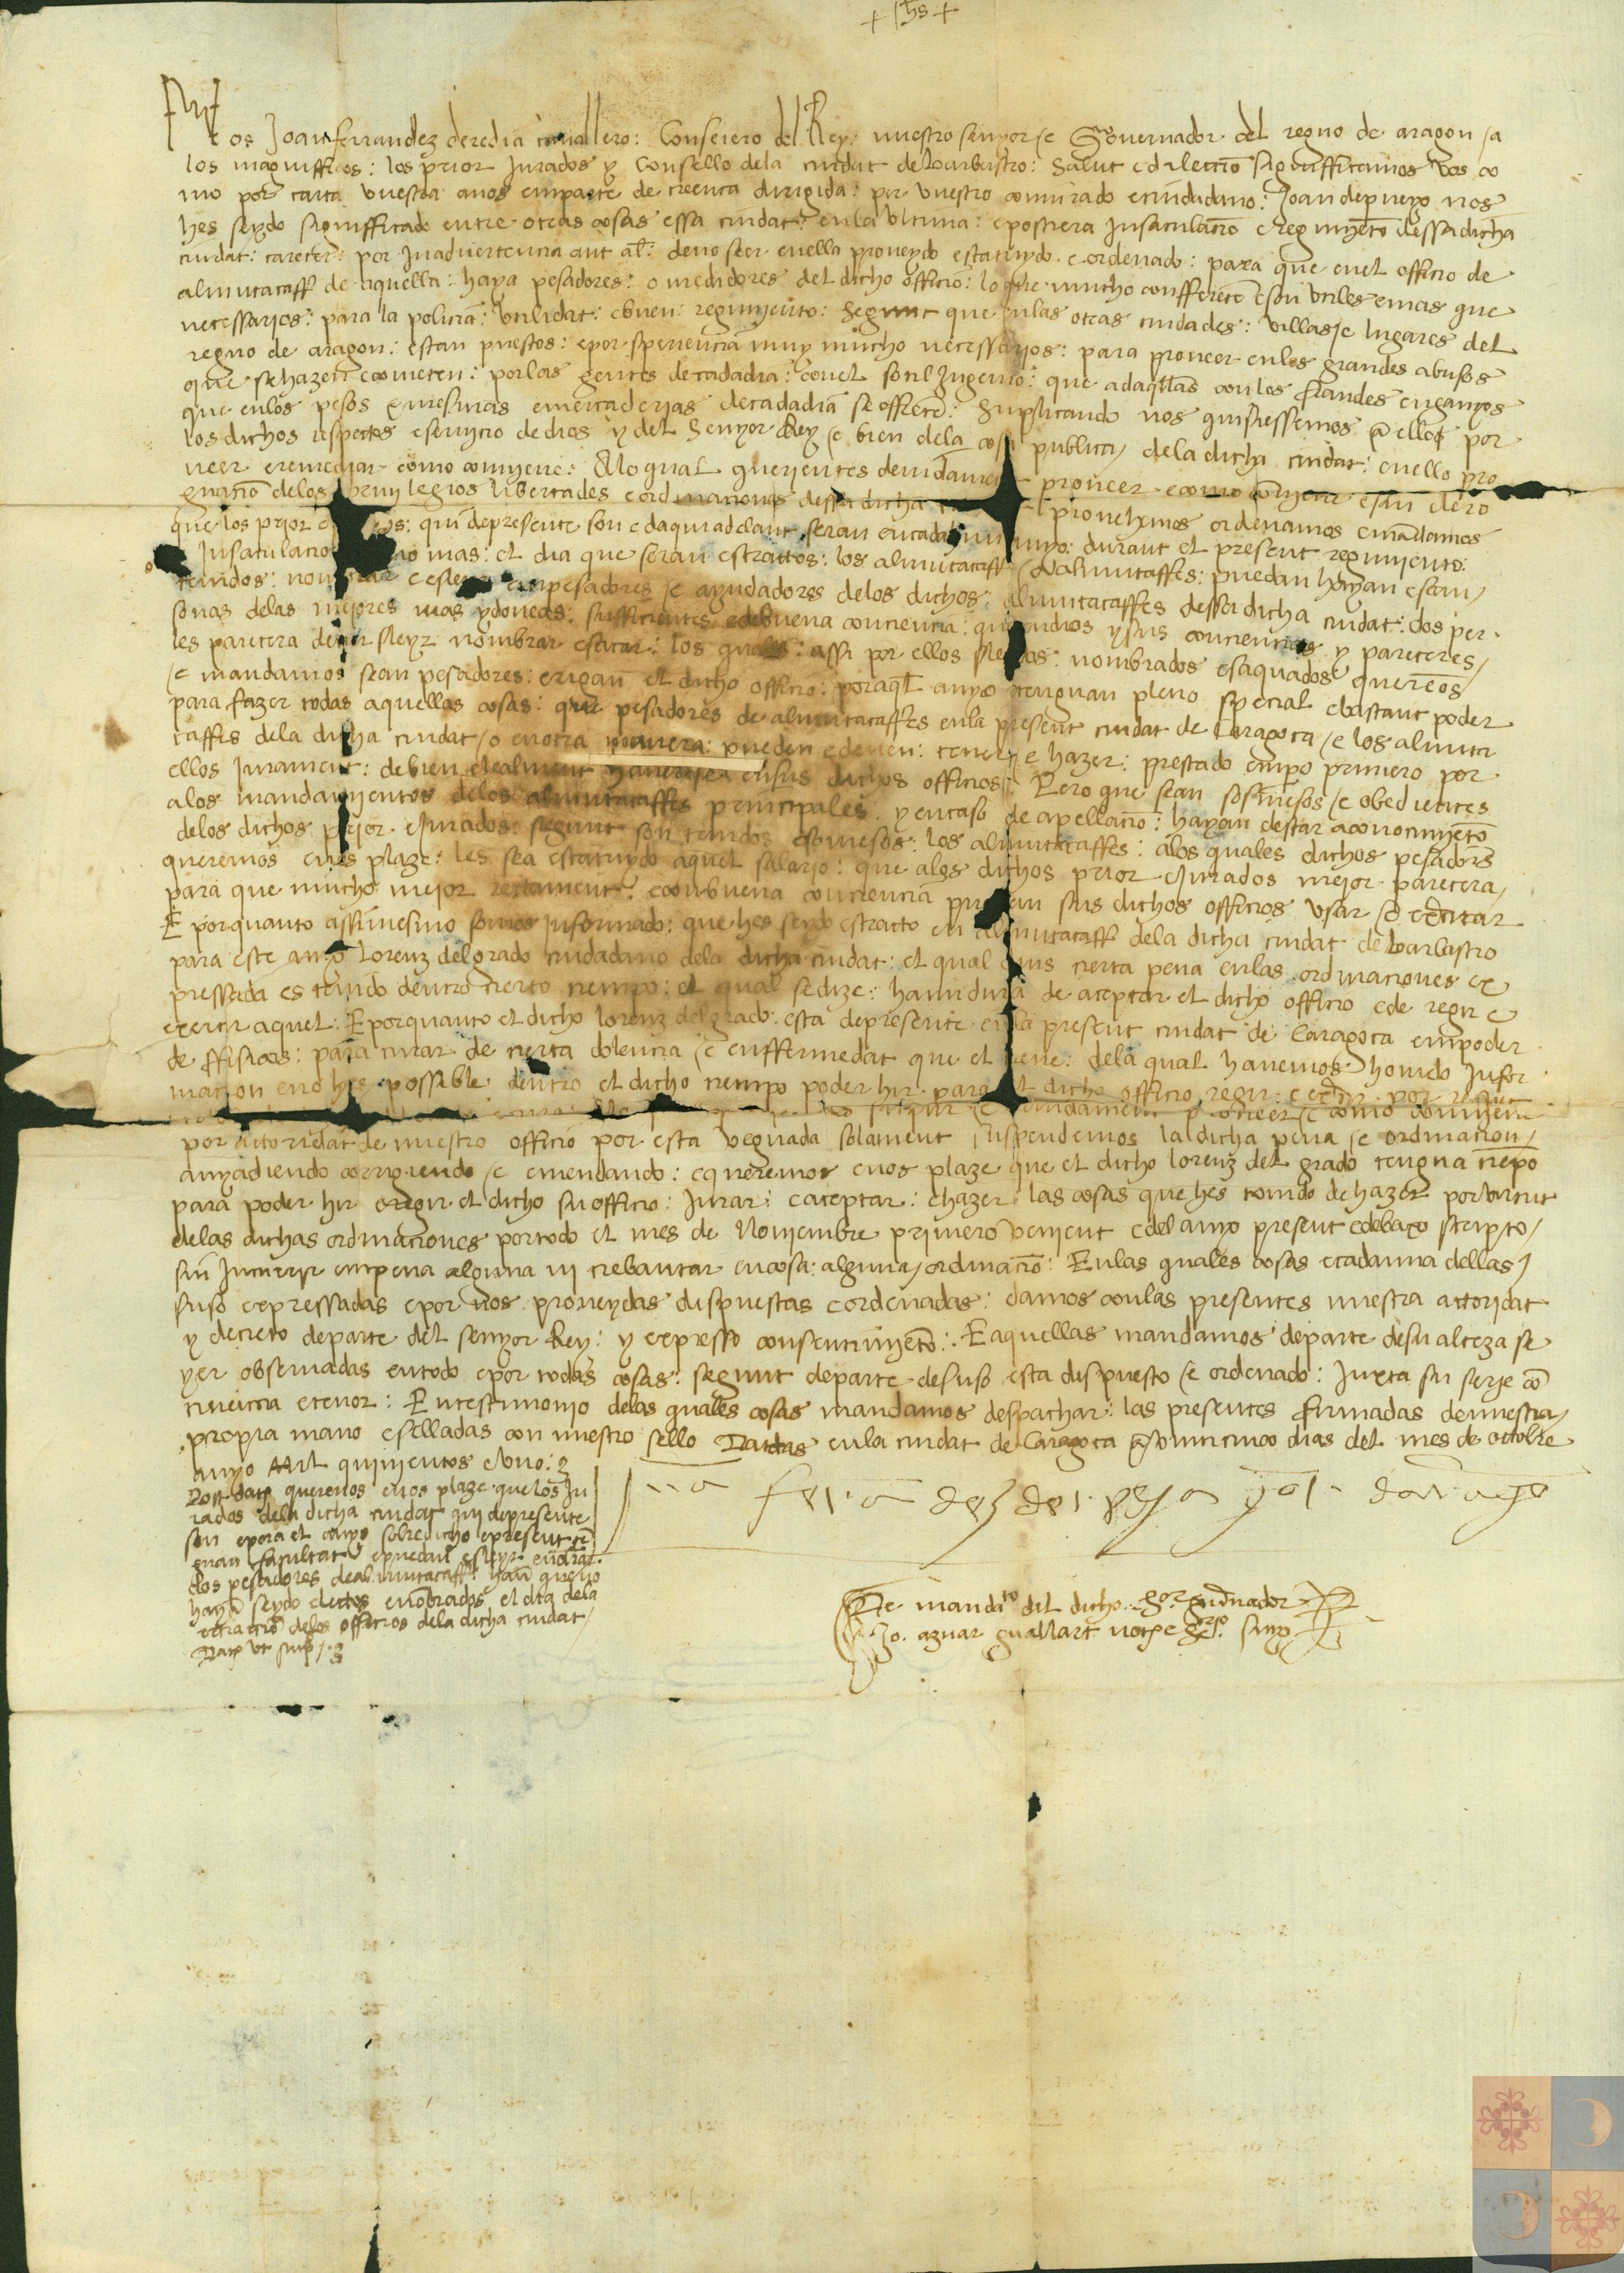 + Jhs +
Nos Joan ferrandez deredia cauallero: Conseiero del Rey nuestro senyor / e Gouernador del regno de aragon / a
los magnifficos: los prior Jurados y Consello dela ciudat de Barbastro: Salut e dilectio significamos vos co
mo por carta vuestra anos enparte de creença dirigida: per vuestro conjurado e ciudadano: Joan depueyo nos
hes seydo significado entre otras cosas essa ciudat: enla vltima: e postrera Insaculacio e regimjeto dessa dicha
ciudat: carecer: por Inaduertencia aut al: deno seer enella proueydo estatuydo e ordenado: para que enel officio de
almutacaff de aquella: haya pesadores: o medidores del dicho officio: lo que mucho conffierece e son vtiles emas que
necessarios: para la policia: vtilidat: ebuen: regimjento: Segunt que enlas otras ciudades: villas / e lugares del
regno de aragon: estan puestos: epor speriencia muy mucho necessarios: para proueer enlos grandes abusos
que sehazen e cometen: porlas gentes decadadia: conel sotil Ingenio: que adaqllas conlos fraudes enganyos
que enlos pesos e mesuras emercaderias decadadia se offrece: Suplicando nos quisiessemos a ellos por
los dichos respectos eseruicio dedios y del Senyor Rey / e bien dela cosa publica / dela dicha ciudat: enello pro
ueer eremediar como conujene: Alo qual querientes deuidament proueer ecomo conujene esin dero
gnacio delos priuilegios libertades e ordinaciones dessa dicha prouehimos ordenamos e mandamos
que los prior e qui depresente son edaquiadelant seran encada hun anyo: durant el present regimjento:
Insaculacio mas: el dia que seran estrattos: los almutacaff / o almutaffes: puedan hayan esean /
tenidos: nombrar e pesadores / e ayudadores delos dichos almutacaffes dessa dicha ciudat: dos per
sonas delas mejores mas ydoneas: sufficientes edebuena conciencia: que endios ysus conciencias y pareceres /
les parecera deuer sleyr nombrar esacar: los quales: assi por ellos nombrados esaquados queremos
/ e mandamos sean pesadores: erigan el dicho officio: poraql anyo etenguan pleno special ebastant poder
para fazer todas aquellas cosas: que pesadores de almutacaffes enla present ciudat de Çaragoça / e los almuta
caffes dela dicha ciudat / o enotra manera: pueden edeuen: tener / e hazer: prestado enpo primero por
ellos Jurament: debien elealment hauerse ensus dichos officios: Pero que sean sosmesos / e obedientes
alos mandamjentos delos almutacaffes principales: y encaso de apellacio: hayan destar aconocimjeto
delos dichos prior eJurados: segunt son tenidos esosmesos: los almutacaffes: alos quales dichos pesadores
queremos enos plaze: les sea estatuydo aquel salario: que alos dichos prior eJurados mejor parecera /
para que mucho mejor rectament: e conbuena conciencia puedan sus dichos officios vsar / o exercitar
E porquanto assimesmo somos Informado: que hes seydo estracto en almutacaff dela dicha ciudat de barbastro
para este anyo Lorenz delgrado ciudadano dela dicha ciudat: el qual cierta pena enlas ordinaciones ex
pressada es tenido dentro cierto tiempo: el qual se dize: hauidura de aceptar el dicho officio ede regir e
exercir aquel: E porquanto el dicho lorenz delgrado: esta depresente enla present ciudat de Caragoca enpoder
de ffisicos: para curar de cierta dolencia / e enffermedat que el tiene: dela qual hauemos hauido Infor
macion eno hes possible dentro el dicho tiempo poder hir para el dicho officio regir: e
por actoridat de nuestro officio por esta vegnada solament suspendemos la dicha pena / e ordinacion /
anyadiendo corrigiendo / e emendando: equeremos enos plaze que el dicho lorenz del grado tengua tiepo
para poder hir eregir el dicho su officio: Jurar: e aceptar: ehazer: las cosas que hes tenido de hazer por virtut
delas dichas ordinaciones portodo el mes de Nouiembre primero venient edel anyo present edebaxo scripto /
sin Incurrir enpena alguna ni crebantar encosa: alguna / ordinacio: Enlas quales cosas ecadauna dellas /
suso expressadas epor nos proueydas dispuestas e ordenadas: damos conlas presentes nuestra actoridat
y decreto departe del senyor Rey: y expresso consentimjeto: Eaquellas mandamos departe desu alteza se
yer obseruadas entodo epor todas cosas: segunt departe desuso esta dispuesto / e ordenado: Juxta su serie co
tinencia etenor: Entestimonio delas quales cosas mandamos despachar: las presentes firmadas denuestra /
propia mano e selladas con nuestro sello Dattas enla ciudat de Caragoca a veinticinco dias del mes de octobre
anyo Mil quinientos e vno:
Post data queremos enos plaze quelos Ju
rados dela dicha ciudat qui depresente
son epora el anyo sobredicho epresent te
guan facultat epuedan esleyr
dos pesadores dealmutacaff: que no
haya seydo electos enobrados el dia dela
extractio delos officios dela dicha ciudat /
Data vt supra
De mandto del dicho Sor gouernador
Jo. aznar guallart